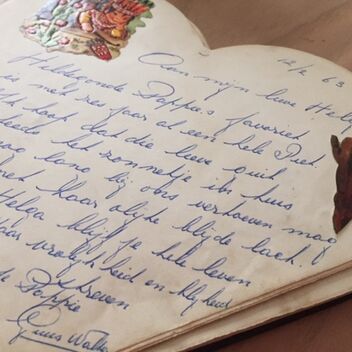 12/2 63
Aan mijn lieve Helga
Hildegonde Pappa's favoriet
is met zes jaar al een hele Piet.
hoopt dat die lieve guit
het zonnetje in huis
lang bij ons vertoeven mag
Haar olijke blijde lach.
Helga blijf je hele leven
vrolijkheid en blijheid
streven
je Pappie
Guus